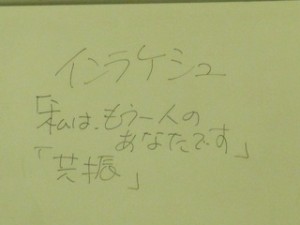 インラケシュ
「私は、もう一人の
あなたです」
「共振」